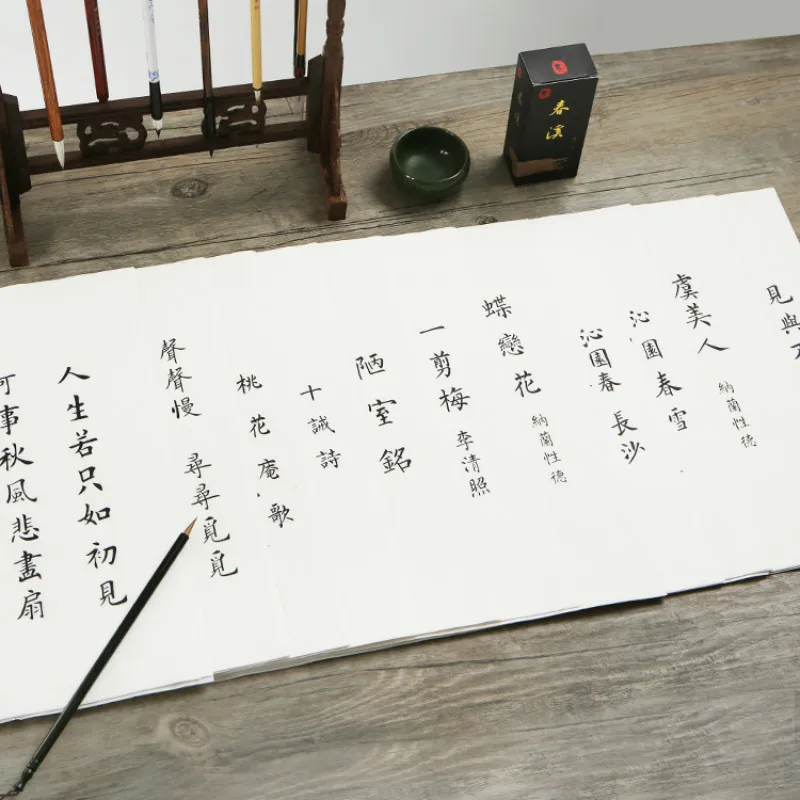 春溪
見與不
虞美人 納蘭性德
沁園春 雪
沁園春 長沙
蝶戀花 納蘭性德
一剪梅 李清照
陋室銘
十誡詩
桃花庵歌
聲聲慢 尋尋覓覓
人生若只如初見
何事秋風悲畫扇